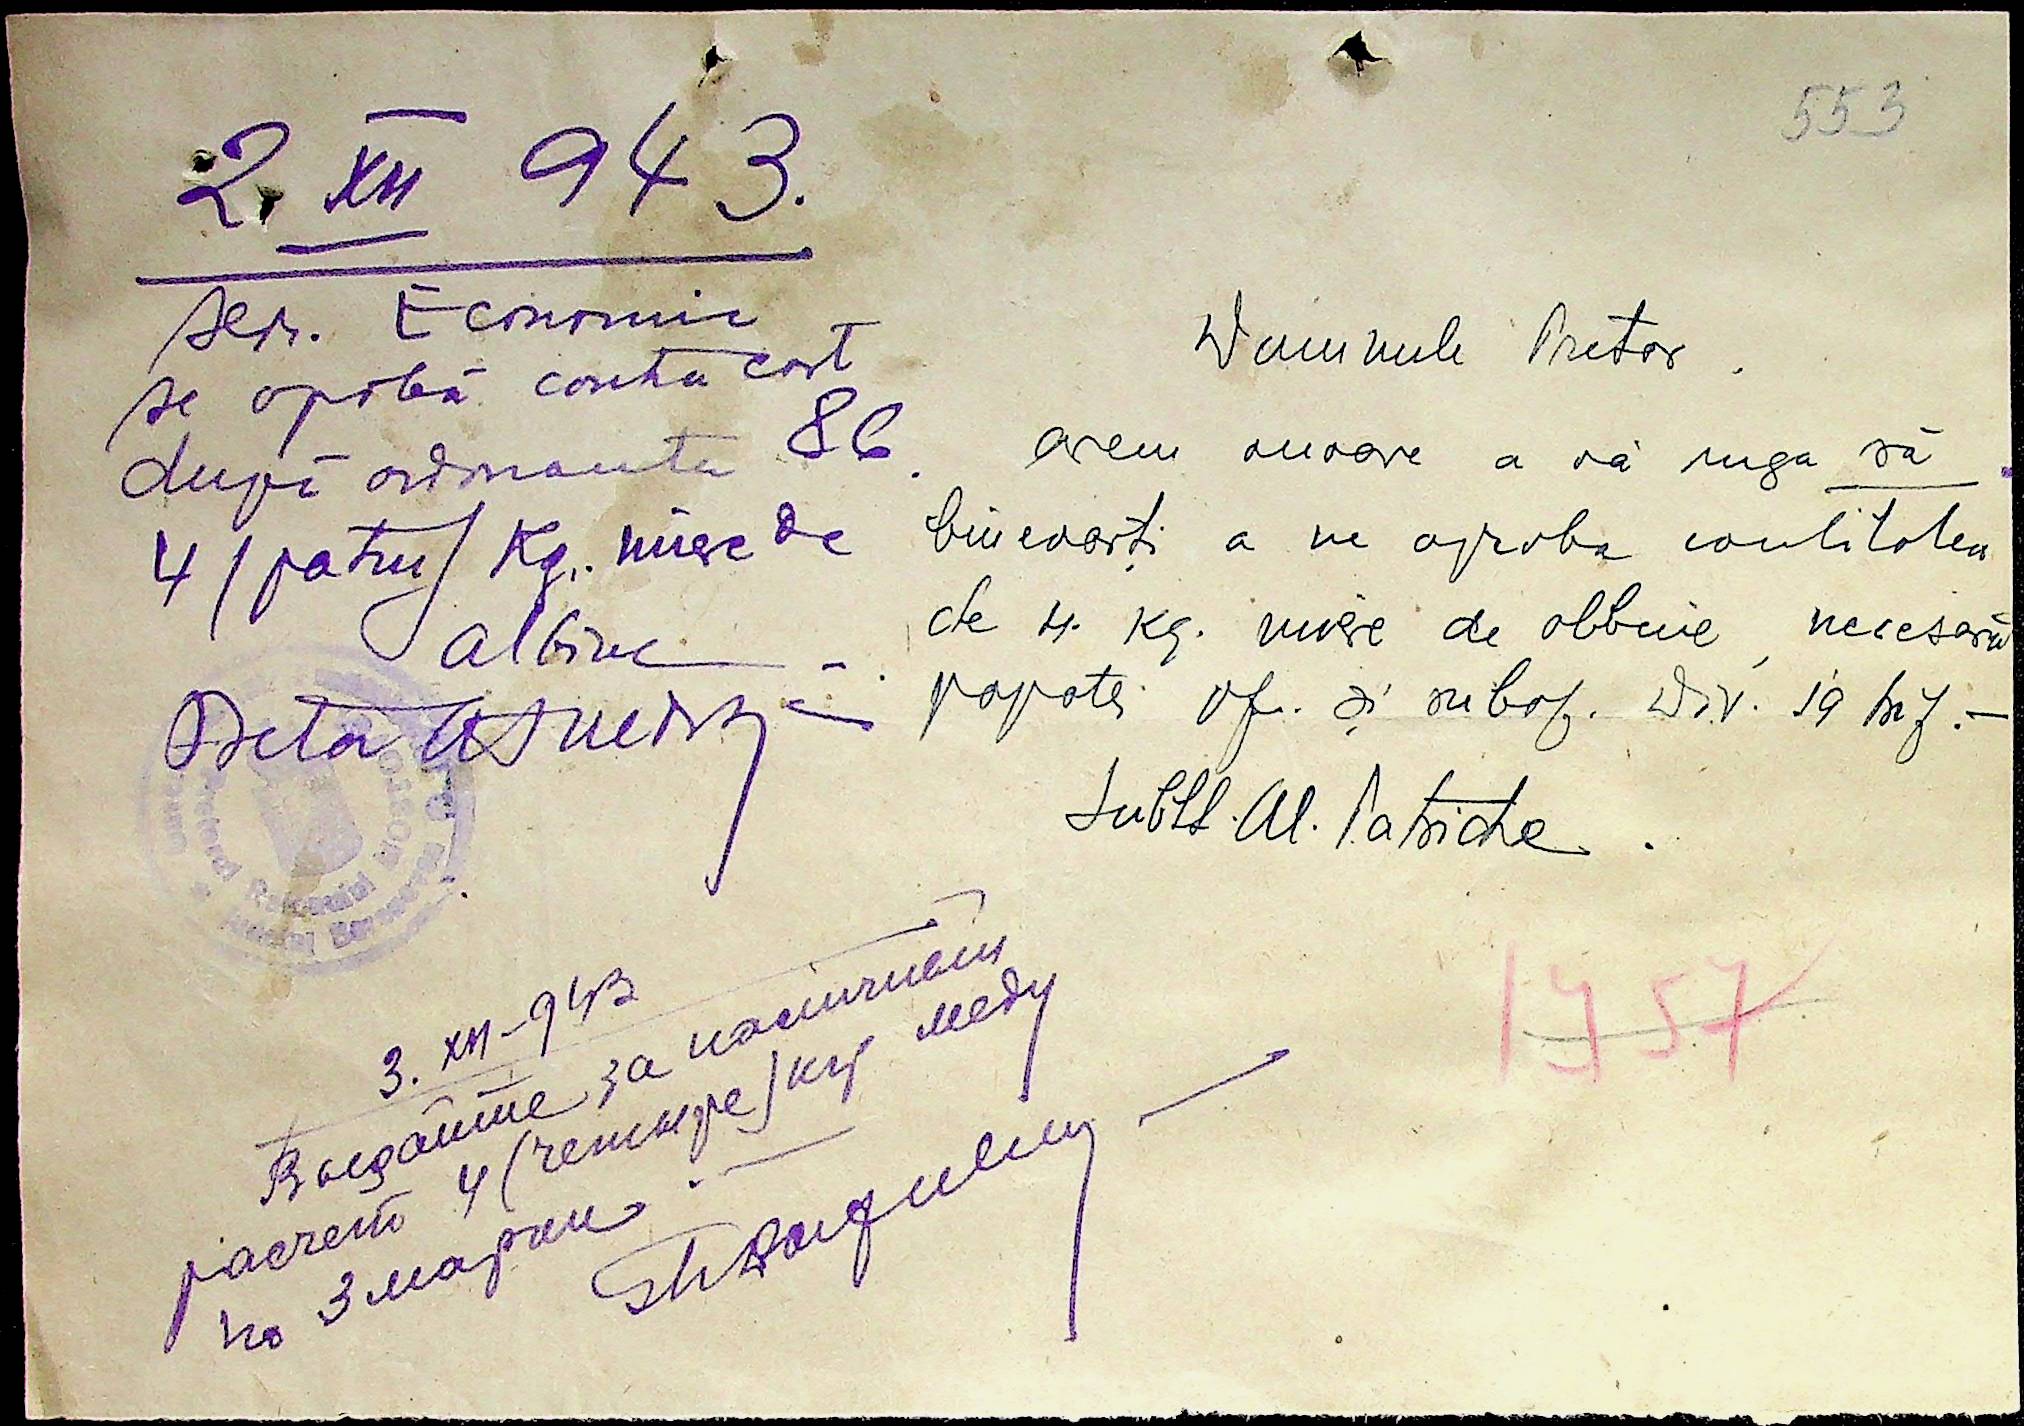 553
2. XII 943.
Serv. Economic
se aprobă contra cost
după ordonanta 86.
4 (patru) Kg. miere de
albine
Domnule Pretor.
avem onoare a vă ruga să
binevoiți a ne aproba cantitatea
de 4 kg. miere de albine, necesară
popotei of. și subof. Div. 19 Inf.
Sublt. Al. Patriche.
Pretor
3. XII-943
Выдайте за наличный
расчет 4 (четыре) кгр меду
по 3 марки.
1957